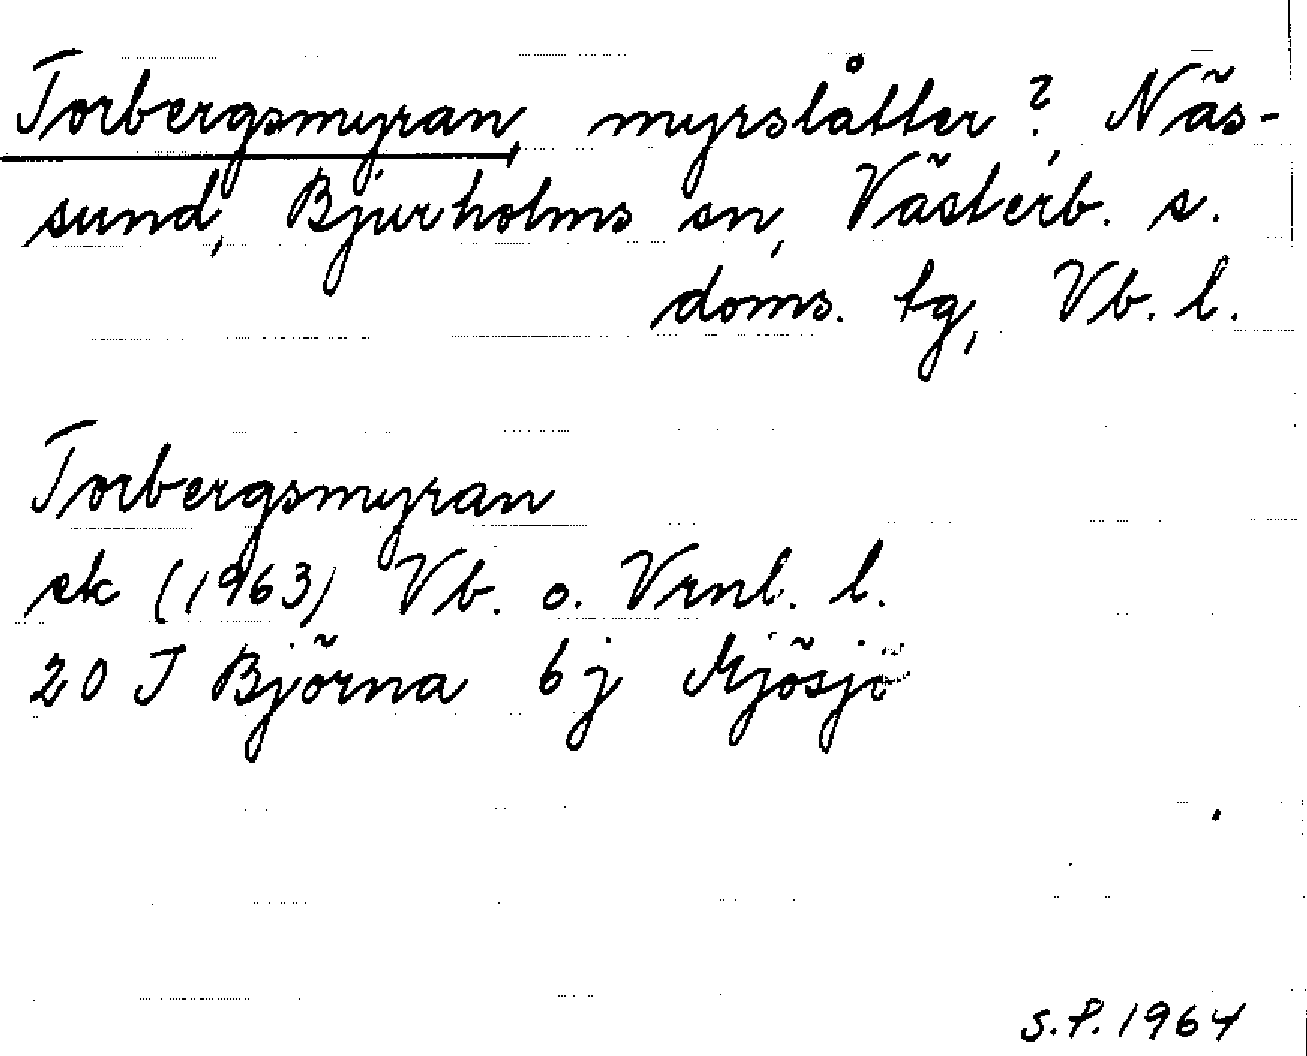 Torbergsmyran, myrslåtter?, Näs-
sund, Bjurholms sn, Västerb. s.
doms. tg, Vb. l.
Torbergsmyran
ek (1963) Vb. o. Vrnl. l.
20 J Björna 6 j Mjösjö
S.P. 1964